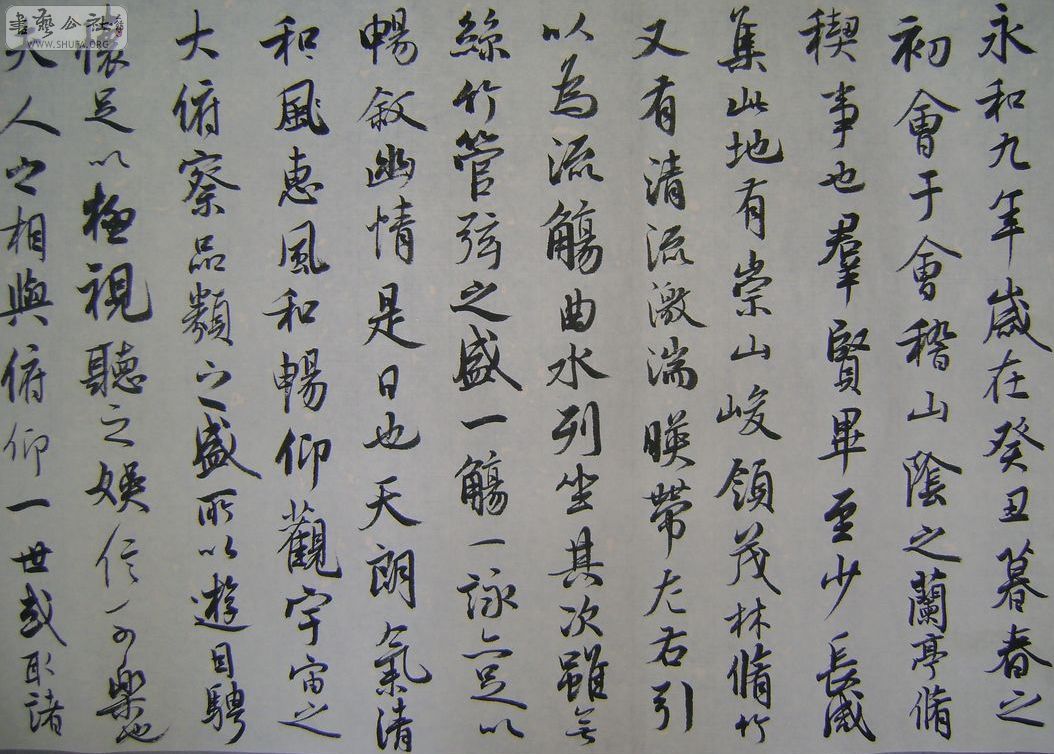 永和九年歲在癸丑暮春之
初會于會稽山陰之蘭亭脩
稧事也羣賢畢至少長咸
集此地有崇山峻領茂林脩竹
又有清流激湍暎帶左右引
以為流觴曲水列坐其次雖无
絲竹管弦之盛一觴一詠亦足以
暢敘幽情是日也天朗氣清
和風惠風和暢仰觀宇宙之
大俯察品類之盛所以遊目騁
懷足以極視聽之娛信可樂也
夫人之相與俯仰一世或取諸
書藝公社
WWW.SHUFA.ORG